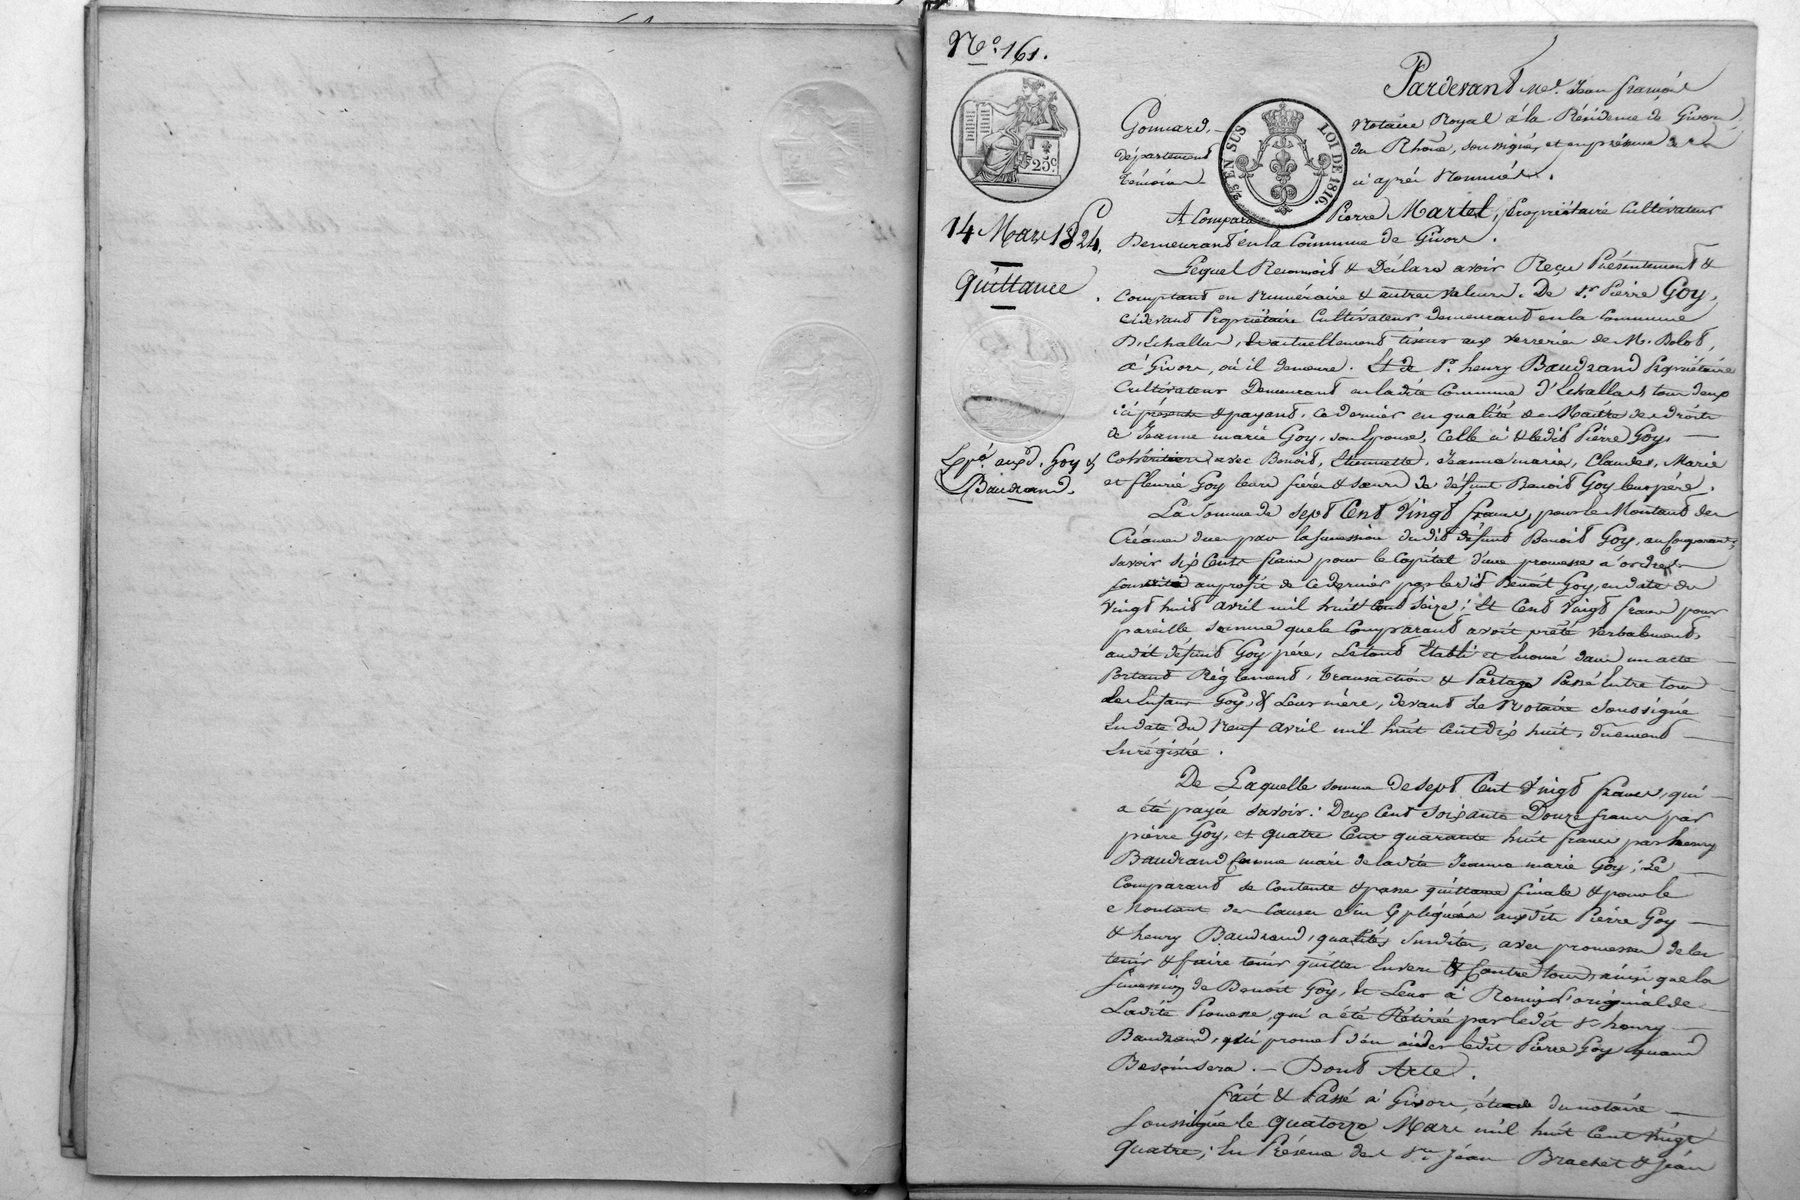 N.º 161.
Pardevant Me. Jean françois
Gonnard, Notaire Royal à la Résidence de Givors,
département du Rhône, soussigné, et en présence des
témoins ci après Nommés.
25.c
2/5 EN SUS
LOI DE 1816.
14 Mars 1824.
Quittance
A Comparu Pierre Martel, propriétaire Cultivateur
Demeurant en la Commune de Givors.
Lequel Reconnoit & Déclare avoir Reçu Présentement &
Comptant en Numéraire & autres valeurs. De sr. Pierre Goy,
cidevant Propriétaire Cultivateur demeurant en la Commune
D'Echallas, & actuellement tiseur aux verreries de M. Bolot,
à Givors, où il demeure. Et de sr. henry Baudrand Propriétaire
Cultivateur Demeurant en ladite Commune d'Echallas tous deux
ici présents & payant, ce dernier en qualité de Maître des droits
de Jeanne marie Goy, son Epouse, Celle ci & ledit Pierre Goy,
Cohéritiers avec Benoit, Etiennette, Jeanne marie, Claude, Marie
et fleurie Goy leurs frères & sœurs de défunt Benoit Goy leur père.
Expé. auxd. Goy &
Baudrand.
La Somme de sept Cent Vingt francs, pour le Montant des
Créances dues par la succession dudit défunt Benoit Goy, au Comparant;
savoir six Cents francs pour le Capital d'une promesse à ordre
souscrite au profit de ce dernier par ledit Benoit Goy, en date du
Vingt huit avril mil huit Cent Seize; Et Cent Vingt francs pour
pareille somme que le Comparant avoit prêté verbalement,
audit défunt Goy père, Le tout Etabli et énoncé dans un acte
Portant Règlement, transaction & Partage Passé Entre tous
les Enfans Goy, & Leur mère, devant Le Notaire Soussigné
En date du Neuf avril mil huit Cent dix huit, duement
Enrégistré.
De Laquelle somme de sept Cent Vingt francs, qui
a été payée savoir: Deux Cent Soixante Douze francs par
pierre Goy, et quatre Cent quarante huit francs par henry
Baudrand Comme mari de ladite Jeanne marie Goy; Le
Comparant se Contente & passe quittance finale & pour le
Montant des Causes Sus Expliquées auxdits Pierre Goy
& henry Baudrand, qualités Susdites, avec promesse de les
tenir & faire tenir quittes Envers & Contre tous, ainsi que la
Succession de Benoit Goy, Et Leur à Remis l'original de
Ladite Promesse, qui a été Retirée par ledit sr. henry
Baudrand, qui promet d'en aider ledit Pierre Goy quand
Besoin sera. — Dont Acte.
fait & Passé à Givors, étude du notaire
Soussigné le Quatorze Mars mil huit Cent Vingt
Quatre; En Présence des Srs. Jean Brachet & Jean